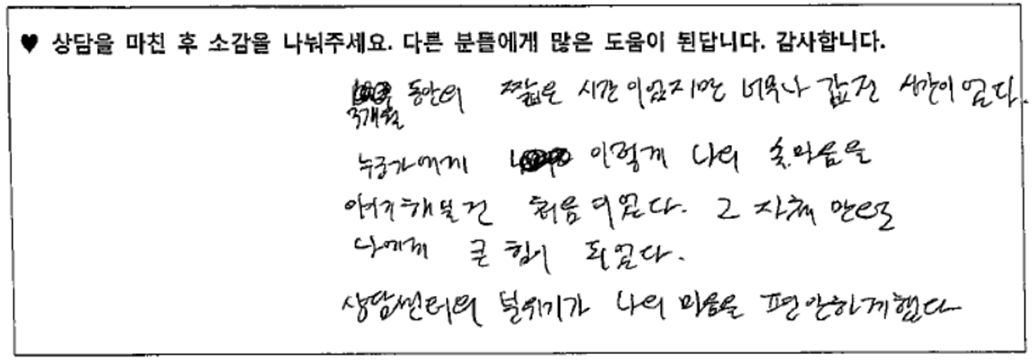 ♥ 상담을 마친 후 소감을 나눠주세요. 다른 분들에게 많은 도움이 된답니다. 감사합니다.
3개월 동안의 짧은 시간이었지만 너무나 값진 시간이었다.
누군가에게 이렇게 나의 속마음을
얘기해 본 건 처음이었다. 그 자체만으로
나에게 큰 힘이 되었다.
상담센터의 분위기가 나의 마음을 편안하게 했다